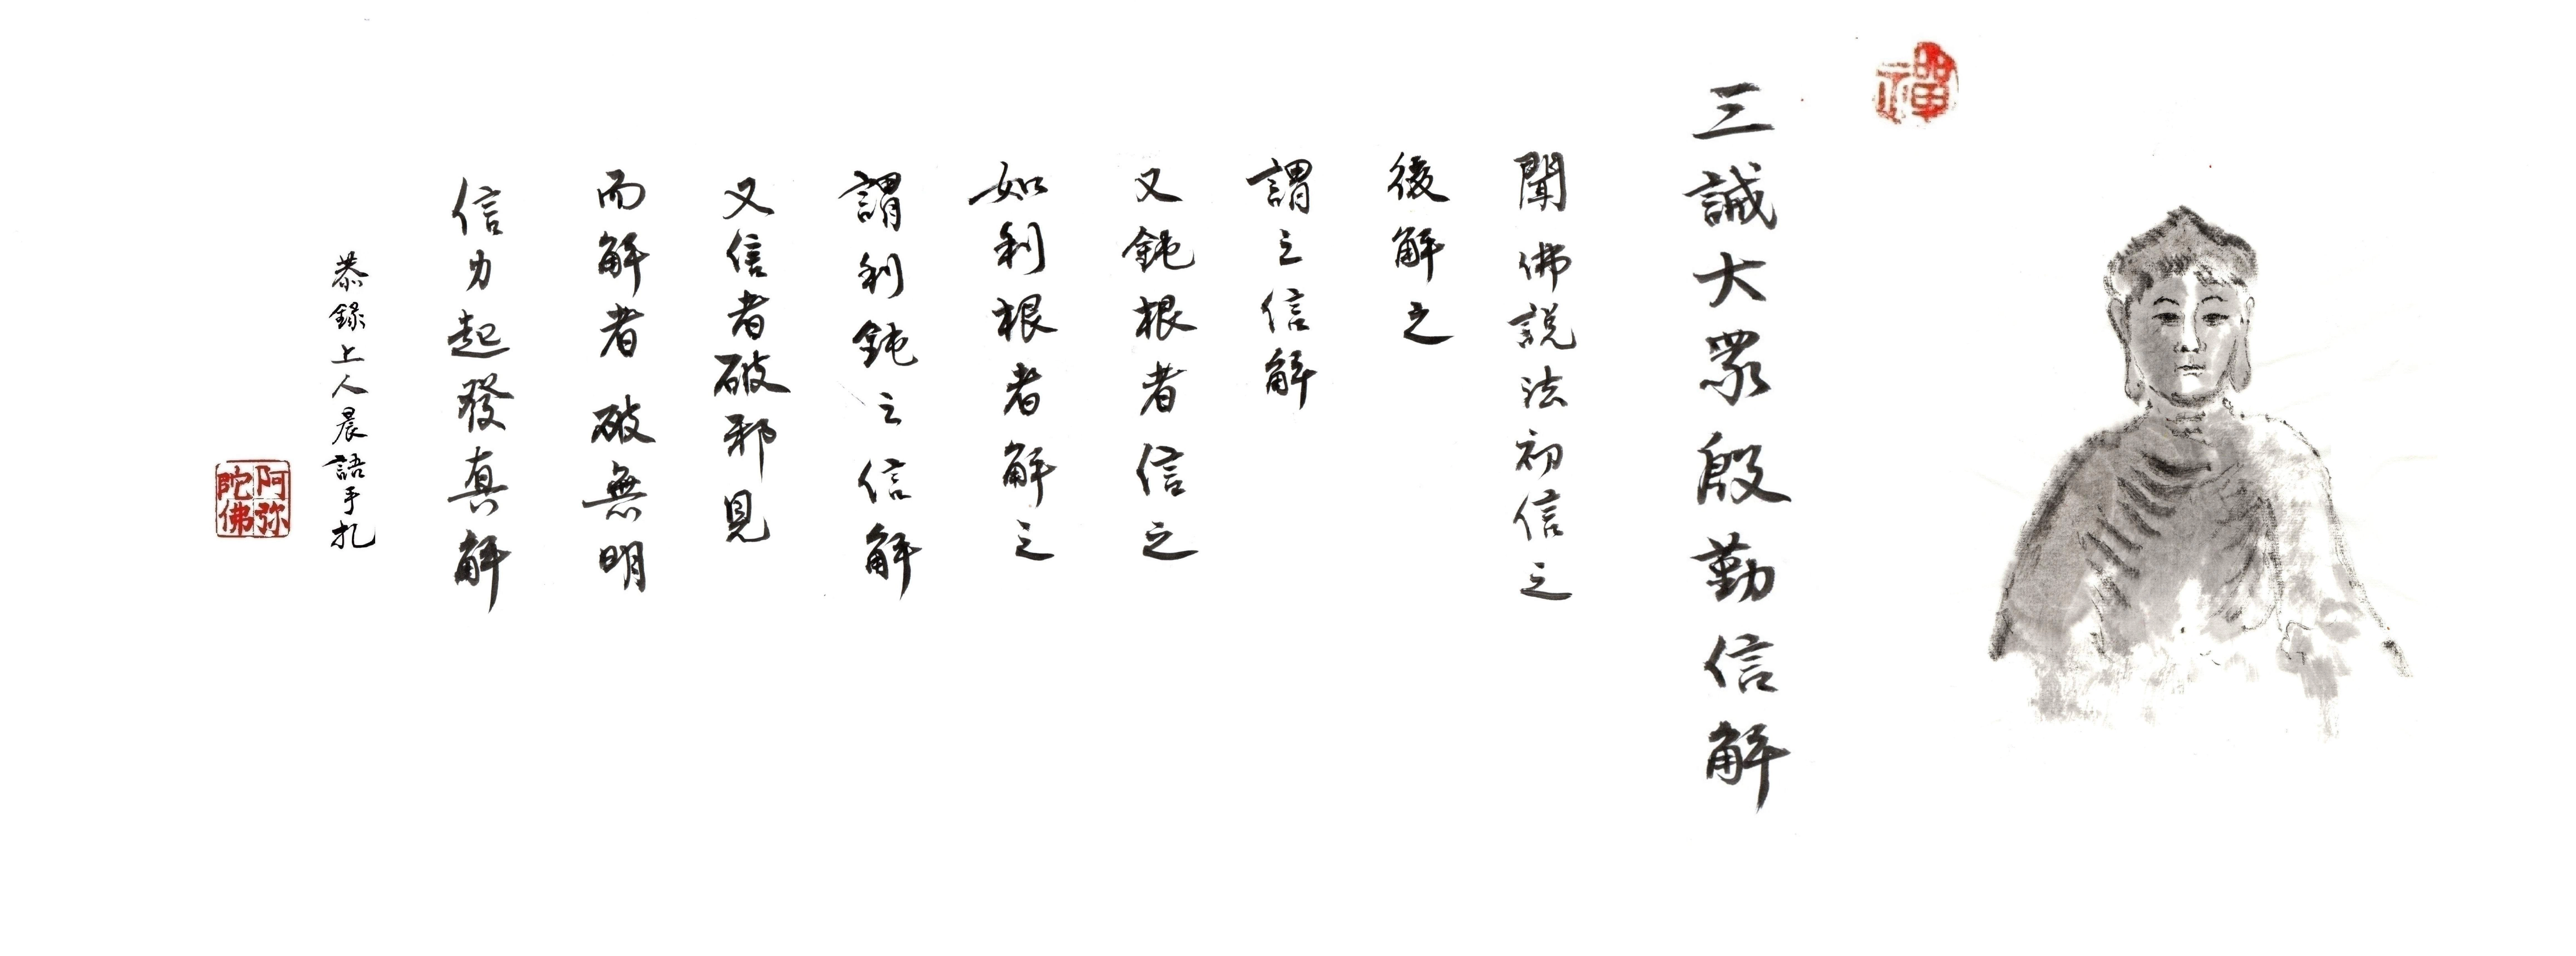 禪
三誡大眾殷勤信解
聞佛說法初信之
後解之
謂之信解
又鈍根者信之
如利根者解之
謂利鈍之信解
又信者破邪見
而解者破無明
信力起發真解
恭錄上人晨語手扎
阿弥陀佛